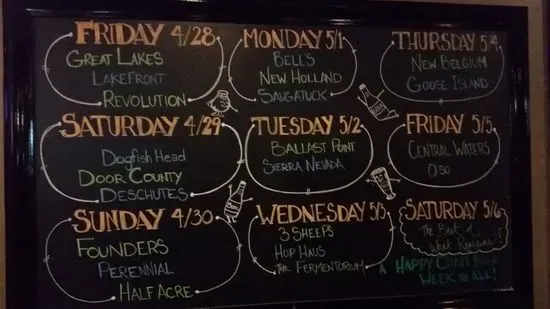 FRIDAY 4/28
GREAT LAKES
LAKEFRONT
REVOLUTION
SATURDAY 4/29
Dogfish Head
DOOR COUNTY
DESCHUTES
SUNDAY 4/30
FOUNDERS
PERENNIAL
HALF ACRE
MONDAY 5/1
BELL'S
NEW HOLLAND
SAUGATUCK
TUESDAY 5/2
BALLAST POINT
SIERRA NEVADA
WEDNESDAY 5/3
3 SHEEPS
HOP HAUS
THE FERMENTORIUM
THURSDAY 5/4
NEW BELGIUM
GOOSE ISLAND
FRIDAY 5/5
CENTRAL WATERS
OSO
SATURDAY 5/6
The Best of
what Remains
HAPPY CRAFT BEER
WEEK TO ALL!